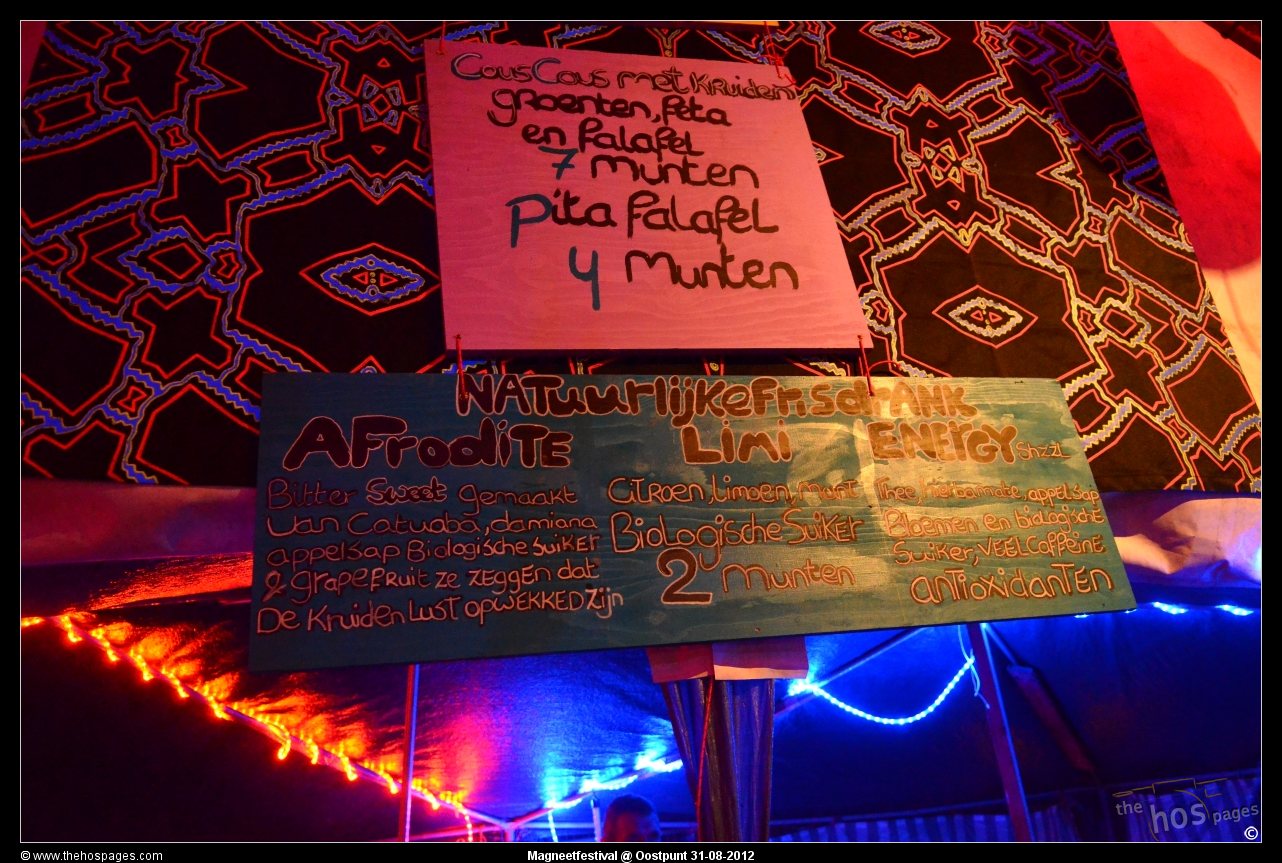 CousCous met Kruiden
groenten, feta
en falafel
7 munten
Pita falafel
4 munten
NATuurlijke Frisdrank
AFrodiTE
Bitter Sweet gemaakt
van Catuaba, damiana
appelsap Biologische suiker
& grapefruit ze zeggen dat
De Kruiden Lust opwekkeD zijn
Limi
CiTROEN, limoen, munt
Biologische Suiker
2 munten
ENERGY Shzzl
Thee, hierbamate, appelsap
Bloemen en biologisch
Suiker, VEEL Coffeïne
anTioxidanTEN
the hos pages
©
© www.thehospages.com
Magneetfestival @ Oostpunt 31-08-2012